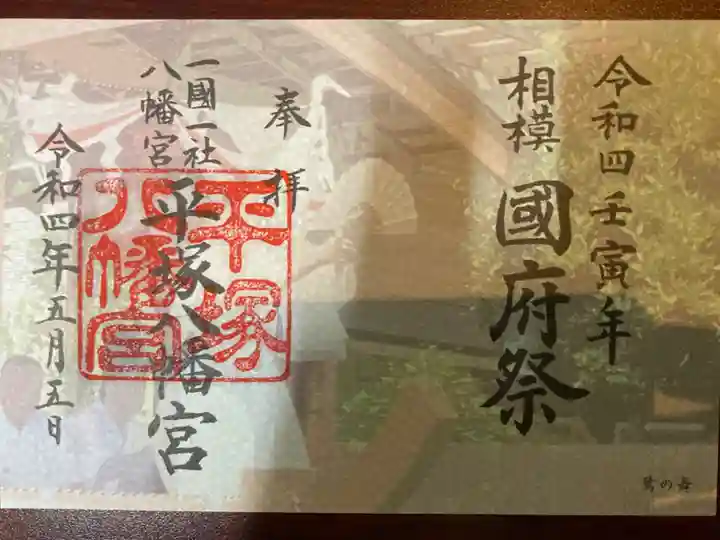 令和四壬寅年
相模 國府祭
奉拝
一國一社
八幡宮
平塚八幡宮
令和四年五月五日
平塚
八幡宮
鷺の舞